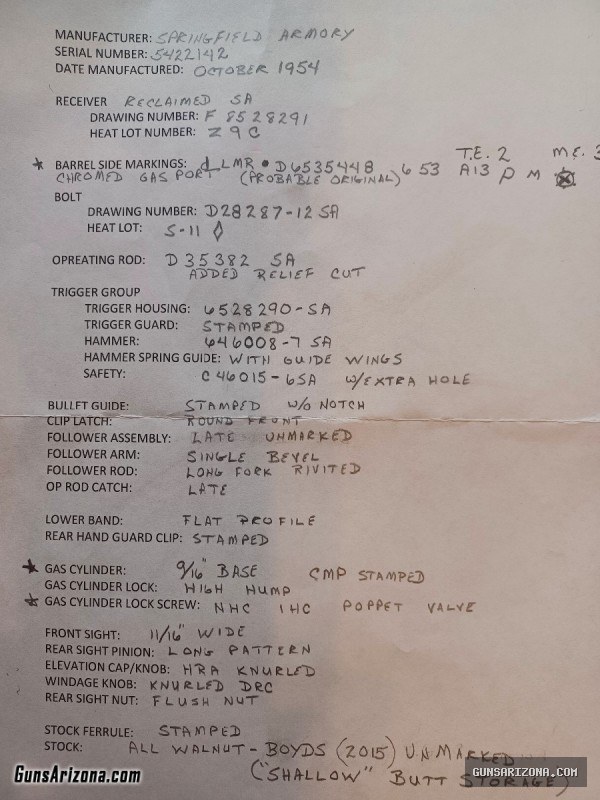 MANUFACTURER: SPRINGFIELD ARMORY
SERIAL NUMBER: 5422142
DATE MANUFACTURED: OCTOBER 1954
RECEIVER RECLAIMED SA
DRAWING NUMBER: F 8528291
HEAT LOT NUMBER: Z 9 C
T.E. 2 M.E. 3
* BARREL SIDE MARKINGS: LMR • D6535448 6 53 A13 P M
CHROMED GAS PORT (PROBABLE ORIGINAL)
BOLT
DRAWING NUMBER: D28287-12 SA
HEAT LOT: S-11 ◊
OPREATING ROD: D 35382 SA
ADDED RELIEF CUT
TRIGGER GROUP
TRIGGER HOUSING: 6528290-SA
TRIGGER GUARD: STAMPED
HAMMER: 646008-7 SA
HAMMER SPRING GUIDE: WITH GUIDE WINGS
SAFETY: C46015-6SA W/EXTRA HOLE
BULLET GUIDE: STAMPED W/O NOTCH
CLIP LATCH: ROUND FRONT
FOLLOWER ASSEMBLY: LATE UNMARKED
FOLLOWER ARM: SINGLE BEVEL
FOLLOWER ROD: LONG FORK RIVITED
OP ROD CATCH: LATE
LOWER BAND: FLAT PROFILE
REAR HAND GUARD CLIP: STAMPED
★ GAS CYLINDER: 9/16" BASE CMP STAMPED
GAS CYLINDER LOCK: HIGH HUMP
★ GAS CYLINDER LOCK SCREW: NHC IHC POPPET VALVE
FRONT SIGHT: 11/16" WIDE
REAR SIGHT PINION: LONG PATTERN
ELEVATION CAP/KNOB: HRA KNURLED
WINDAGE KNOB: KNURLED DRC
REAR SIGHT NUT: FLUSH NUT
STOCK FERRULE: STAMPED
STOCK: ALL WALNUT - BOYDS (2015) UNMARKED
("SHALLOW" BUTT STORAGE)
GunsArizona.com
GUNSARIZONA.COM